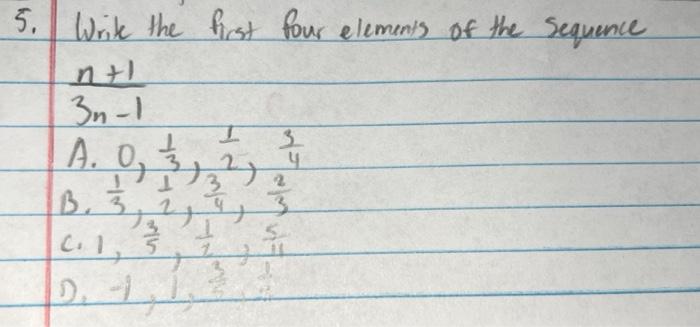 5. Write the first four elements of the Sequence
n+1
3n-1
A. 0, 1/3, 1/2, 3/4
B. 1/3, 1/2, 3/4, 2/3
C. 1, 3/5, 1/2, 5/11
D. -1, 1, 3/5, 1/2